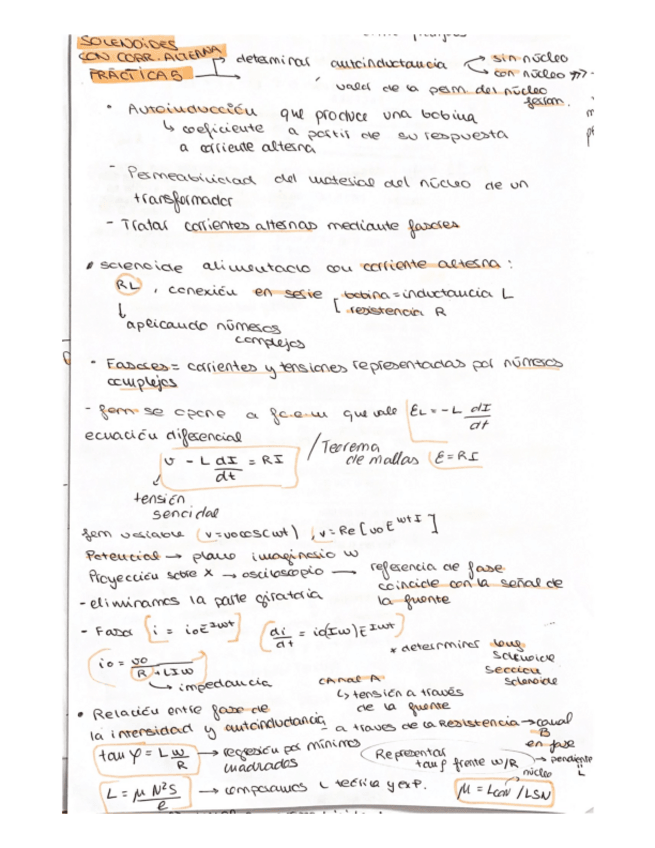 SOLENOIDES
CON CORR. ALTERNA
PRÁCTICAS
determinar autoinductancia → sin núcleo
→ con núcleo
valor de la perm. del núcleo
ferom.
• Autoinducción que produce una bobina
↳ coeficiente a partir de su respuesta
a corriente alterna
- Permeabilidad del material del núcleo de un
transformador
- Tratar corrientes alternas mediante fasores
• solenoide alimentado con corriente alterna:
RL, conexión en serie [ bobina = inductancia L
resistencia R
↓
aplicando números
complejos
- Fasores = corrientes y tensiones representadas por números
complejos
- fem se opone a f.c.e.m que vale EL = -L dI/dt
ecuación diferencial
v - L dI/dt = RI / Teorema
de mallas ε = RI
tensión
senoidal
fem variable (v = vo cos(wt)), v = Re[vo E^wtI]
Potencial → plano imaginario w
Proyección sobre X → osciloscopio — referencia de fase
coincide con la señal de
la fuente
- eliminamos la parte giratoria
- Fasor [i = io E^Iwt] [di/dt = io(Iw)E^Iwt]
* determinar long
solenoide
sección
solenoide
io = vo/(R + LIw)
↳ impedancia
canal A
↳ tensión a través
de la fuente
• Relación entre fase de
la intensidad y autoinductancia - a través de la Resistencia → canal
B
en fase
tan φ = L w/R → regresión por mínimos
cuadrados
Representar
tan φ frente w/R → pendiente
L
L = μ N²S/e → comparamos L teórica y exp.
núcleo
μ = LCN / LSN